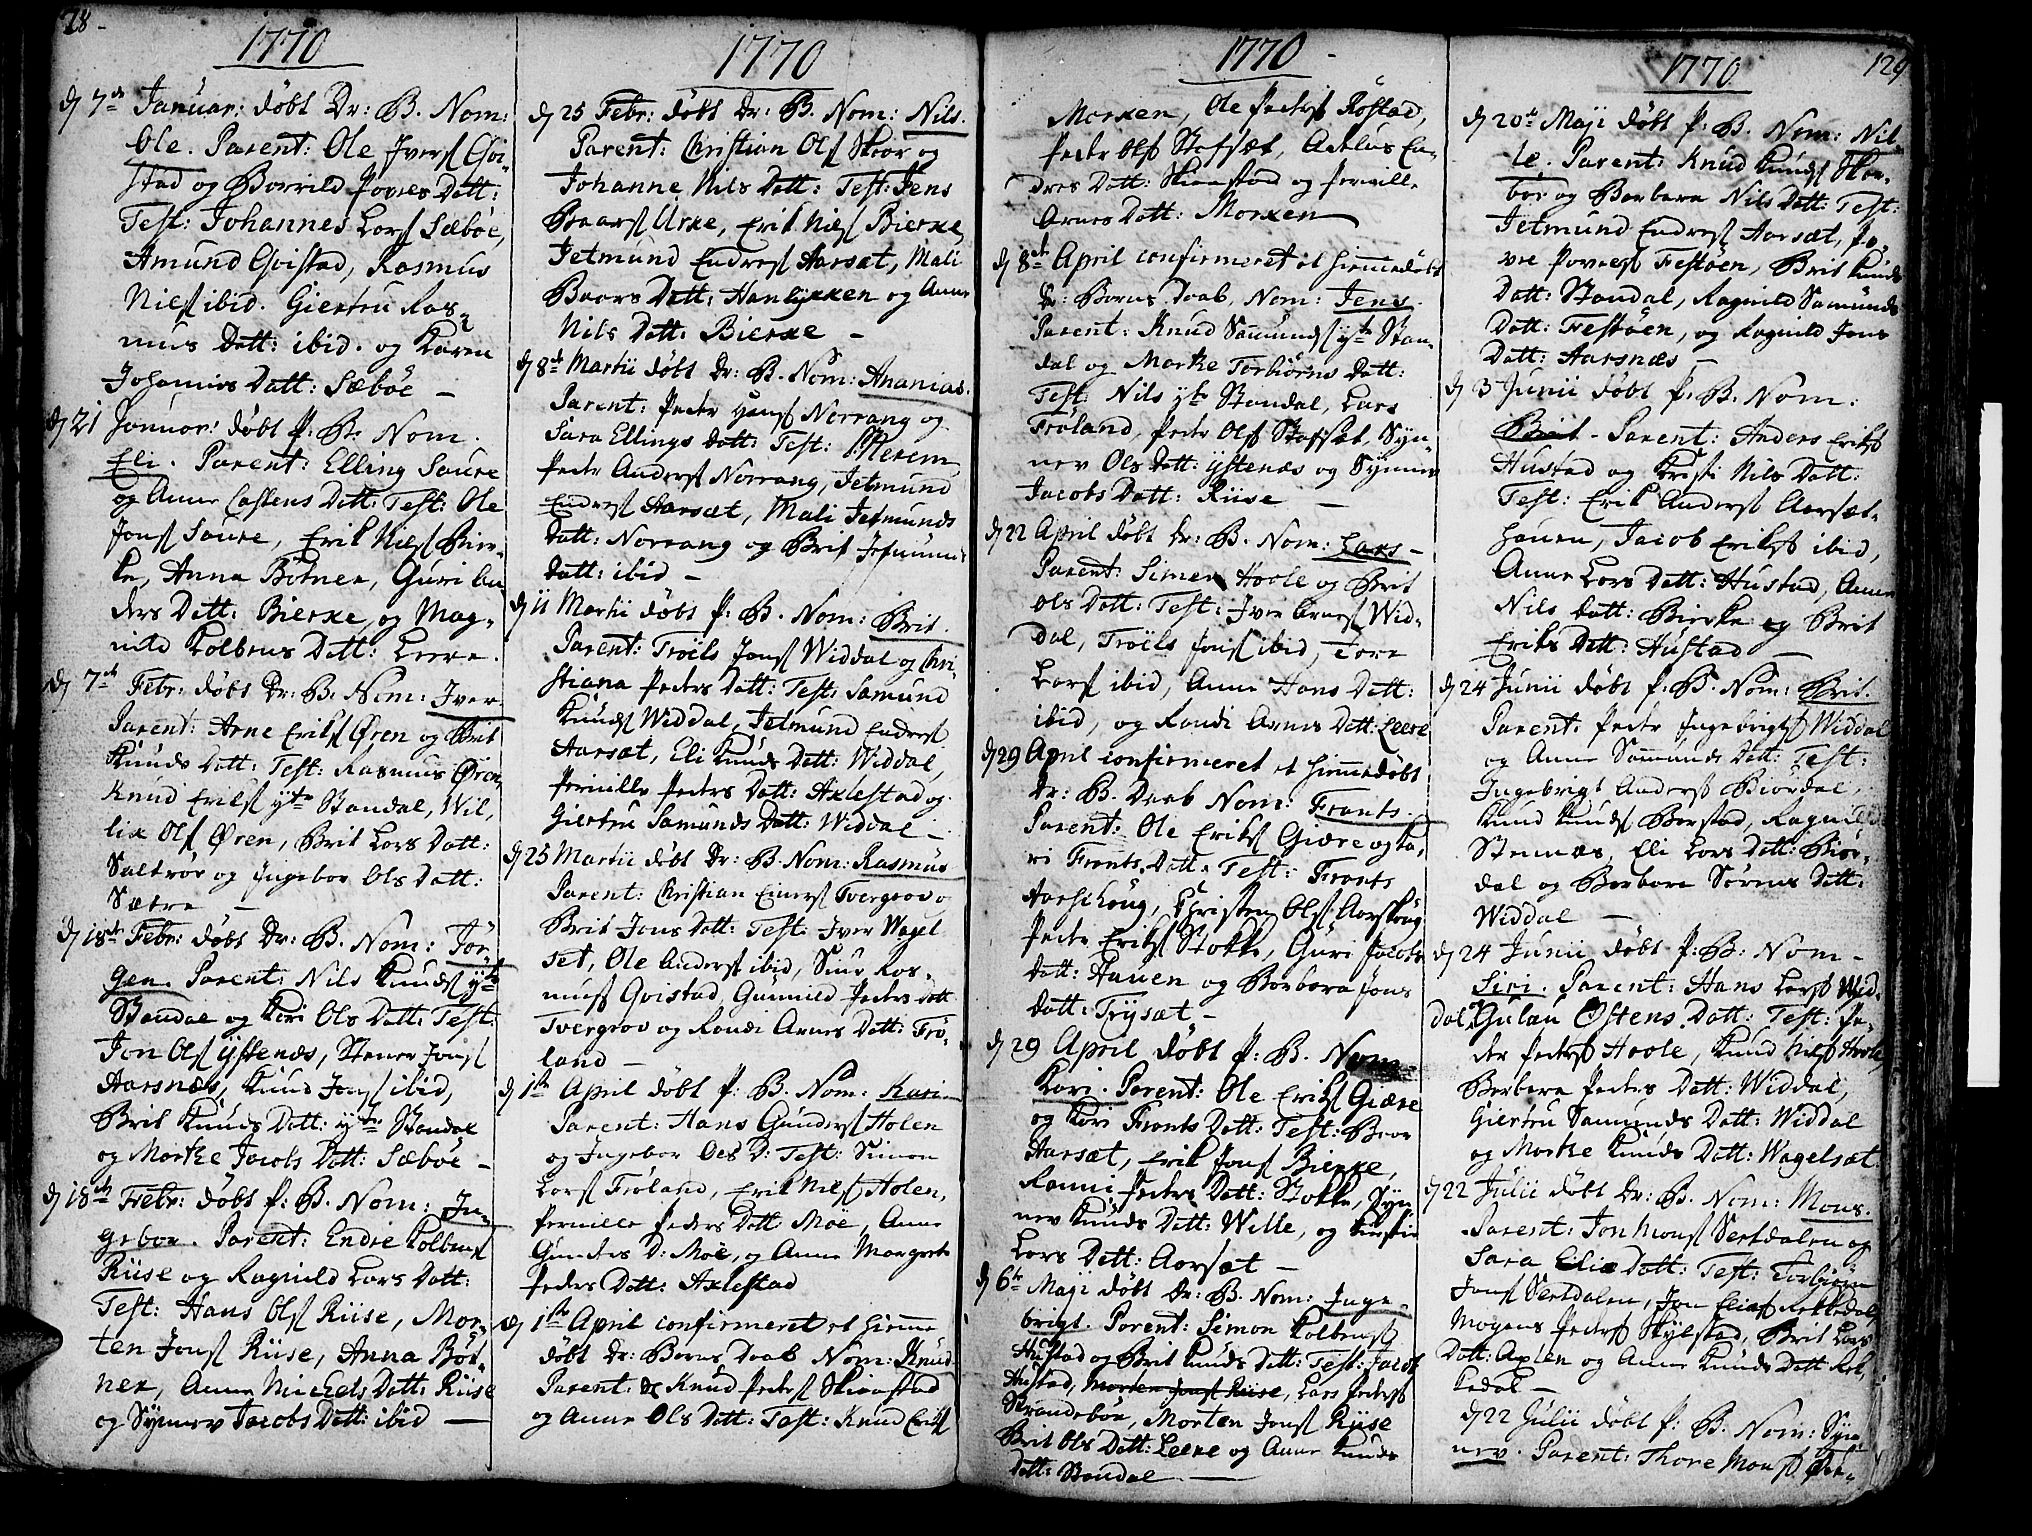 28-
1770
d 7de Januar: døbt Dr: B. Nom:
Ole. Parent: Ole Ivers Goi
stad og Borrild Povels Datt:
Test: Johannes Lars Sæbøe,
Amund Goistad, Rasmus
Nils ibid. Giertru Ras-
mus Datt: ibid. og Karen
Johannes Datt: Sæbøe -
d 21 Januar: døbt P: B. Nom.
Eli. Parent: Elling Saure
og Anne Castens Datt: Test: Ole
Jons Saure, Erik Niels Bier-
ke, Anna Botner, Guri An
ders Datt: Bierke, og Mag-
nild Kolbens Datt: Leere.
d 7de Febr: døbt Dr: B: Nom: Iver
Parent: Arne Eriks Øren og Brit
Knuds Datt: Test: Rasmus Øren,
Knud Eriks yt Standal, Wil,
lix Ols Øren, Brit Lars Datt:
Saltrør og Ingebor Ols Datt:
Sætre -
d 18de Febr: døbt Dr: B. Nom: Jør
gen. Parent: Nils Knuds yt
Standal og Kari Ols Datt: Test:
Jon Ols Ystenæs, Stener Jons
Aarsnæs, Knud Jons ibid,
Brit Knuds Datt: yt Standal
og Marke Jacobs Datt: Sæbøe -
d 18de Febr: døbt P: B. Nom: In-
gebor. Parent: Endre Kolbens
Riise og Ragnild Lars Datt:
Test: Hans Ols Riise, Mor-
ten Jons Riise, Anna Bøt-
ner, Anne Michels Datt: Riise
og Synnev Jacobs Datt: ibid -
1770
d 25 Febr: døbt Dr: B. Nom: Nils.
Parent: Christian Ols Skoor og
Johanne Nils Datt: Test: Jens
Baars Urke, Erik Niels Bierke,
Jetmund Endres Aarsæt, Mali
Baars Datt: Hanlykken og Anne
Nils Datt: Bierke -
d 8de Martii døbt Dr: B. Nom: Ananias.
Parent: Peder Hans Norrang og
Sara Ellings Datt: Test:
Peder Anders Norrang, Jetmund
Endres Aarsæt, Mali Jetmunds
Datt: Norrang og Brit Jetmun-
Datt: ibid -
d 11 Martii døbt P: B. Nom: Brit.
Parent: Troels Jons Widdal og Chri-
stiana Peders Datt: Test: Samund
Knuds Widdal, Jetmund Endres
Aarsæt, Eli Knuds Datt: Widdal,
Pernille Peders Datt: Axlestad og
Giertru Samunds Datt: Widdal -
d 25 Martii døbt Dr: B. Nom: Rasmus
Parent: Christian Einers Tvergrov o
Brit Jons Datt: Test: Iver Wagel
set, Ole Anders ibid, Siur Ras-
mus Goistad, Gunnild Peders Datt
Tvergrov og Randi Arnes Datt: Frø-
land -
d 1te April døbt P: B. Nom: Kari -
Parent: Hans Gunders Holen
og Ingebor Oles D: Test: Simon
Lars Frøland, Erik Niels Holen,
Pernille Peders Datt Moe, Anne
Gunders D: Moe, og Anne Margrete
Peders Datt: Axlestad
d 1te April confirmeret et hiemme
døbt Dr: Barns Daab Nom: Knud
Parent: Knud Peders Skionstad
og Anne Ols Datt: Test: Knud Eriks
1770 -
Morken, Ole Peders Røstad,
Peder Ols Stafsæt, Aatlus En-
dres Datt: Skionstad og Pernille
Arnes Datt: Morken
d 8de April confirmeret et hiemmedøbt
Dr: Barns Daab, Nom: Jens
Parent: Knud Samunds yt Stan-
dal og Marke Torbiørns Datt:
Test: Nils yt Standal, Lars
Frøland, Peder Ols Stafsæt, Syn-
nev Ols Datt: Ystenæs og Synnev
Jacobs Datt: Riise -
d 22 April døbt Dr: B. Nom: Lars -
Parent: Simen Hoole og Brit
Ols Datt: Test: Iver Lars Wid-
dal, Troels Jons ibid, Tore
Lars ibid, Anne Hans Datt:
ibid, og Randi Arnes Datt: Leere
d 29 April confirmeret et hiemmedøbt
Dr: B. Daab Nom: Frants.
Parent: Ole Eriks Giære og Ka,
ri Frants Datt: Test: Frants
Aarskoug, Christen Ols Aarskoug
Peder Eriks Stokke, Guri Jacobs
Datt: Hauen og Barbara Jons
Datt: Trysæt -
d 29 April døbt P: B. Nom
Kari. Parent: Ole Eriks Giære
og Kari Frants Datt: Test: Baar
Aarsæt, Erik Jons Bierke,
Ranni Peders Datt: Stokke, Syn
nev Knuds Datt: Wille, og Kirstie
Lars Datt: Aarsæt -
d 6te Maji døbt Dr: B. Nom: Inge-
brigt. Parent: Simon Kolbens
Hustad og Brit Knuds Datt: Test: Jacob
Hustad, Morten Jons Riise, Lars Peders
Strandebøe, Morten Jons Riise
Brit Ols Datt: Leere og Anne Knuds
Datt: Standal -
1770 129
d 20de Maji døbt P: B. Nom: Nil-
le. Parent: Knud Knuds Skor-
bør og Berbera Nils Datt: Test:
Jetmund Endres Aarsæt, Po
vel Povels Festøen, Brit Knuds
Datt: Standal, Ragnild Samunds
Datt: Festøen, og Ragnild Jons
Datt: Aarsnæs -
d 3 Junii døbt P: B. Nom:
Brit - Parent: Anders Eriks
Hustad og Kirsti Nils Datt:
Test: Erik Anders Aarsæt-
hauen, Jacob Eriks ibid,
Anne Lars Datt: Hustad, Anne
Nils Datt: Bierke og Brit
Eriks Datt: Hustad -
d 24 Junii døbt P: B. Nom: Brit.
Parent: Peder Ingebrigts Widdal
og Anne Samunds Datt: Test:
Ingebrigt Anders Biørdal,
Knud Knuds Barstad, Ragnild
Stennæs, Eli Lars Datt: Biør-
dal og Berbera Sørens Datt:
Widdal -
d 24 Junii døbt P: B: Nom -
Siri. Parent: Hans Lars Wid-
dal, Gulau Ostens Datt: Test: Pe-
der Peders Hoole, Knud Nils Hoole,
Berbera Peders Datt: Widdal,
Giertru Samunds Datt: Widdal
og Marke Knuds Datt: Wagelsæt.
d 22 Julii døbt Dr: B. Nom: Mons.
Parent: Jon Mons Sertdalen og
Sara Elias Datt: Test: Torbiørn
Jons Sertdalen, Jon Elias Rekkedal
Mogens Peders Skylstad, Brit Lars
Datt: Axlen og Anne Knuds Datt Rek
kedal -
d 22 Julii døbt P: B. Nom: Syn
nev. Parent: Thore Mons